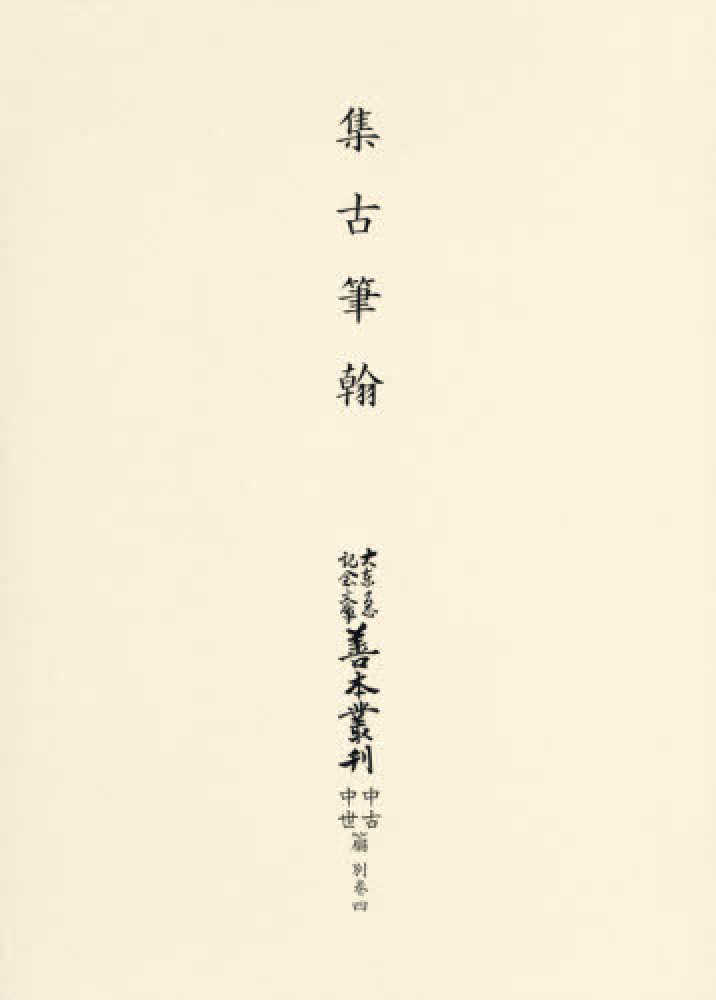 集古筆翰
大東急
記念文庫
善本叢刊
中古
中世
篇
別巻四